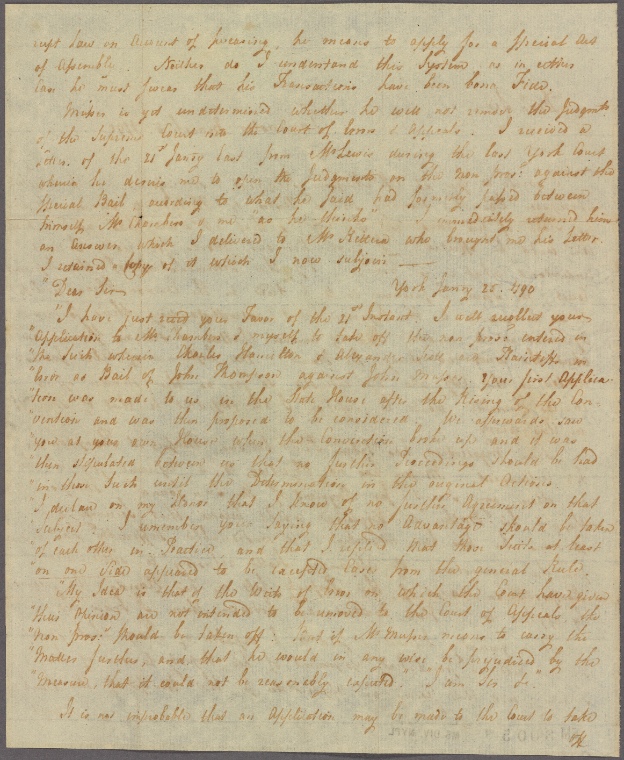 rupt Law on Account of pressing, he means to apply for a Special Act
of Assembly. Neither do I understand this System, as in either
Case he must swear that his Transactions have been bona Fide.
Musser is yet undetermined whether he will not remove the Judgmts
of the Supreme Court into the Court of Errors & Appeals. I received a
Letter of the 21st Janry last from Mr Lewis during the last York Court
wherein he desires me to open the Judgments on the Non pros: against the
Special Bail, according to what he said had formerly passed between
himself, Mr Chambers & me "as he thinks". I immediately returned him
an answer which I delivered to Mr Kittera who brought me his Letter.
I retained a Copy of it which I now subjoin —
"Dear Sir York Janry 25. 1790
"I have just rec'd your Favor of the 21st Instant. I well recollect your
"Application to Mr Chambers & myself to take off the non pros: entered in
"the Suits wherein Charles Hamilton & Alexander were Plaintiffs in
"Error as Bail of John Thompson against John Musser. Your first Applica-
"tion was made to us in the State House after the Rising of the Con-
"vention and was then proposed to be considered. We afterwards saw
"you at your own House when the Convention broke up and it was
"then stipulated between us that no further Proceedings should be had
"in those Suits until the Determination in the original Actions.
"I declare on my Honor "that I know of no further Agreement on that
"Subject. I remember your saying that no Advantage should be taken
"of each other in Practice and that I replied that those Suits at least
"on one Side appeared to be excepted Cases from the general Rule.
"My Idea is that if the Writs of Error on which the Court have given
"their Opinion are not intended to be removed to the Court of Appeals, the
"Non pros: should be taken off: but if Mr Musser means to carry the
"Matter further, and that he would in any wise be prejudiced by the
"Measure, that it could not be reasonably expected. "I am Sir &c."
It is not improbable that an Application may be made to the Court to take
off